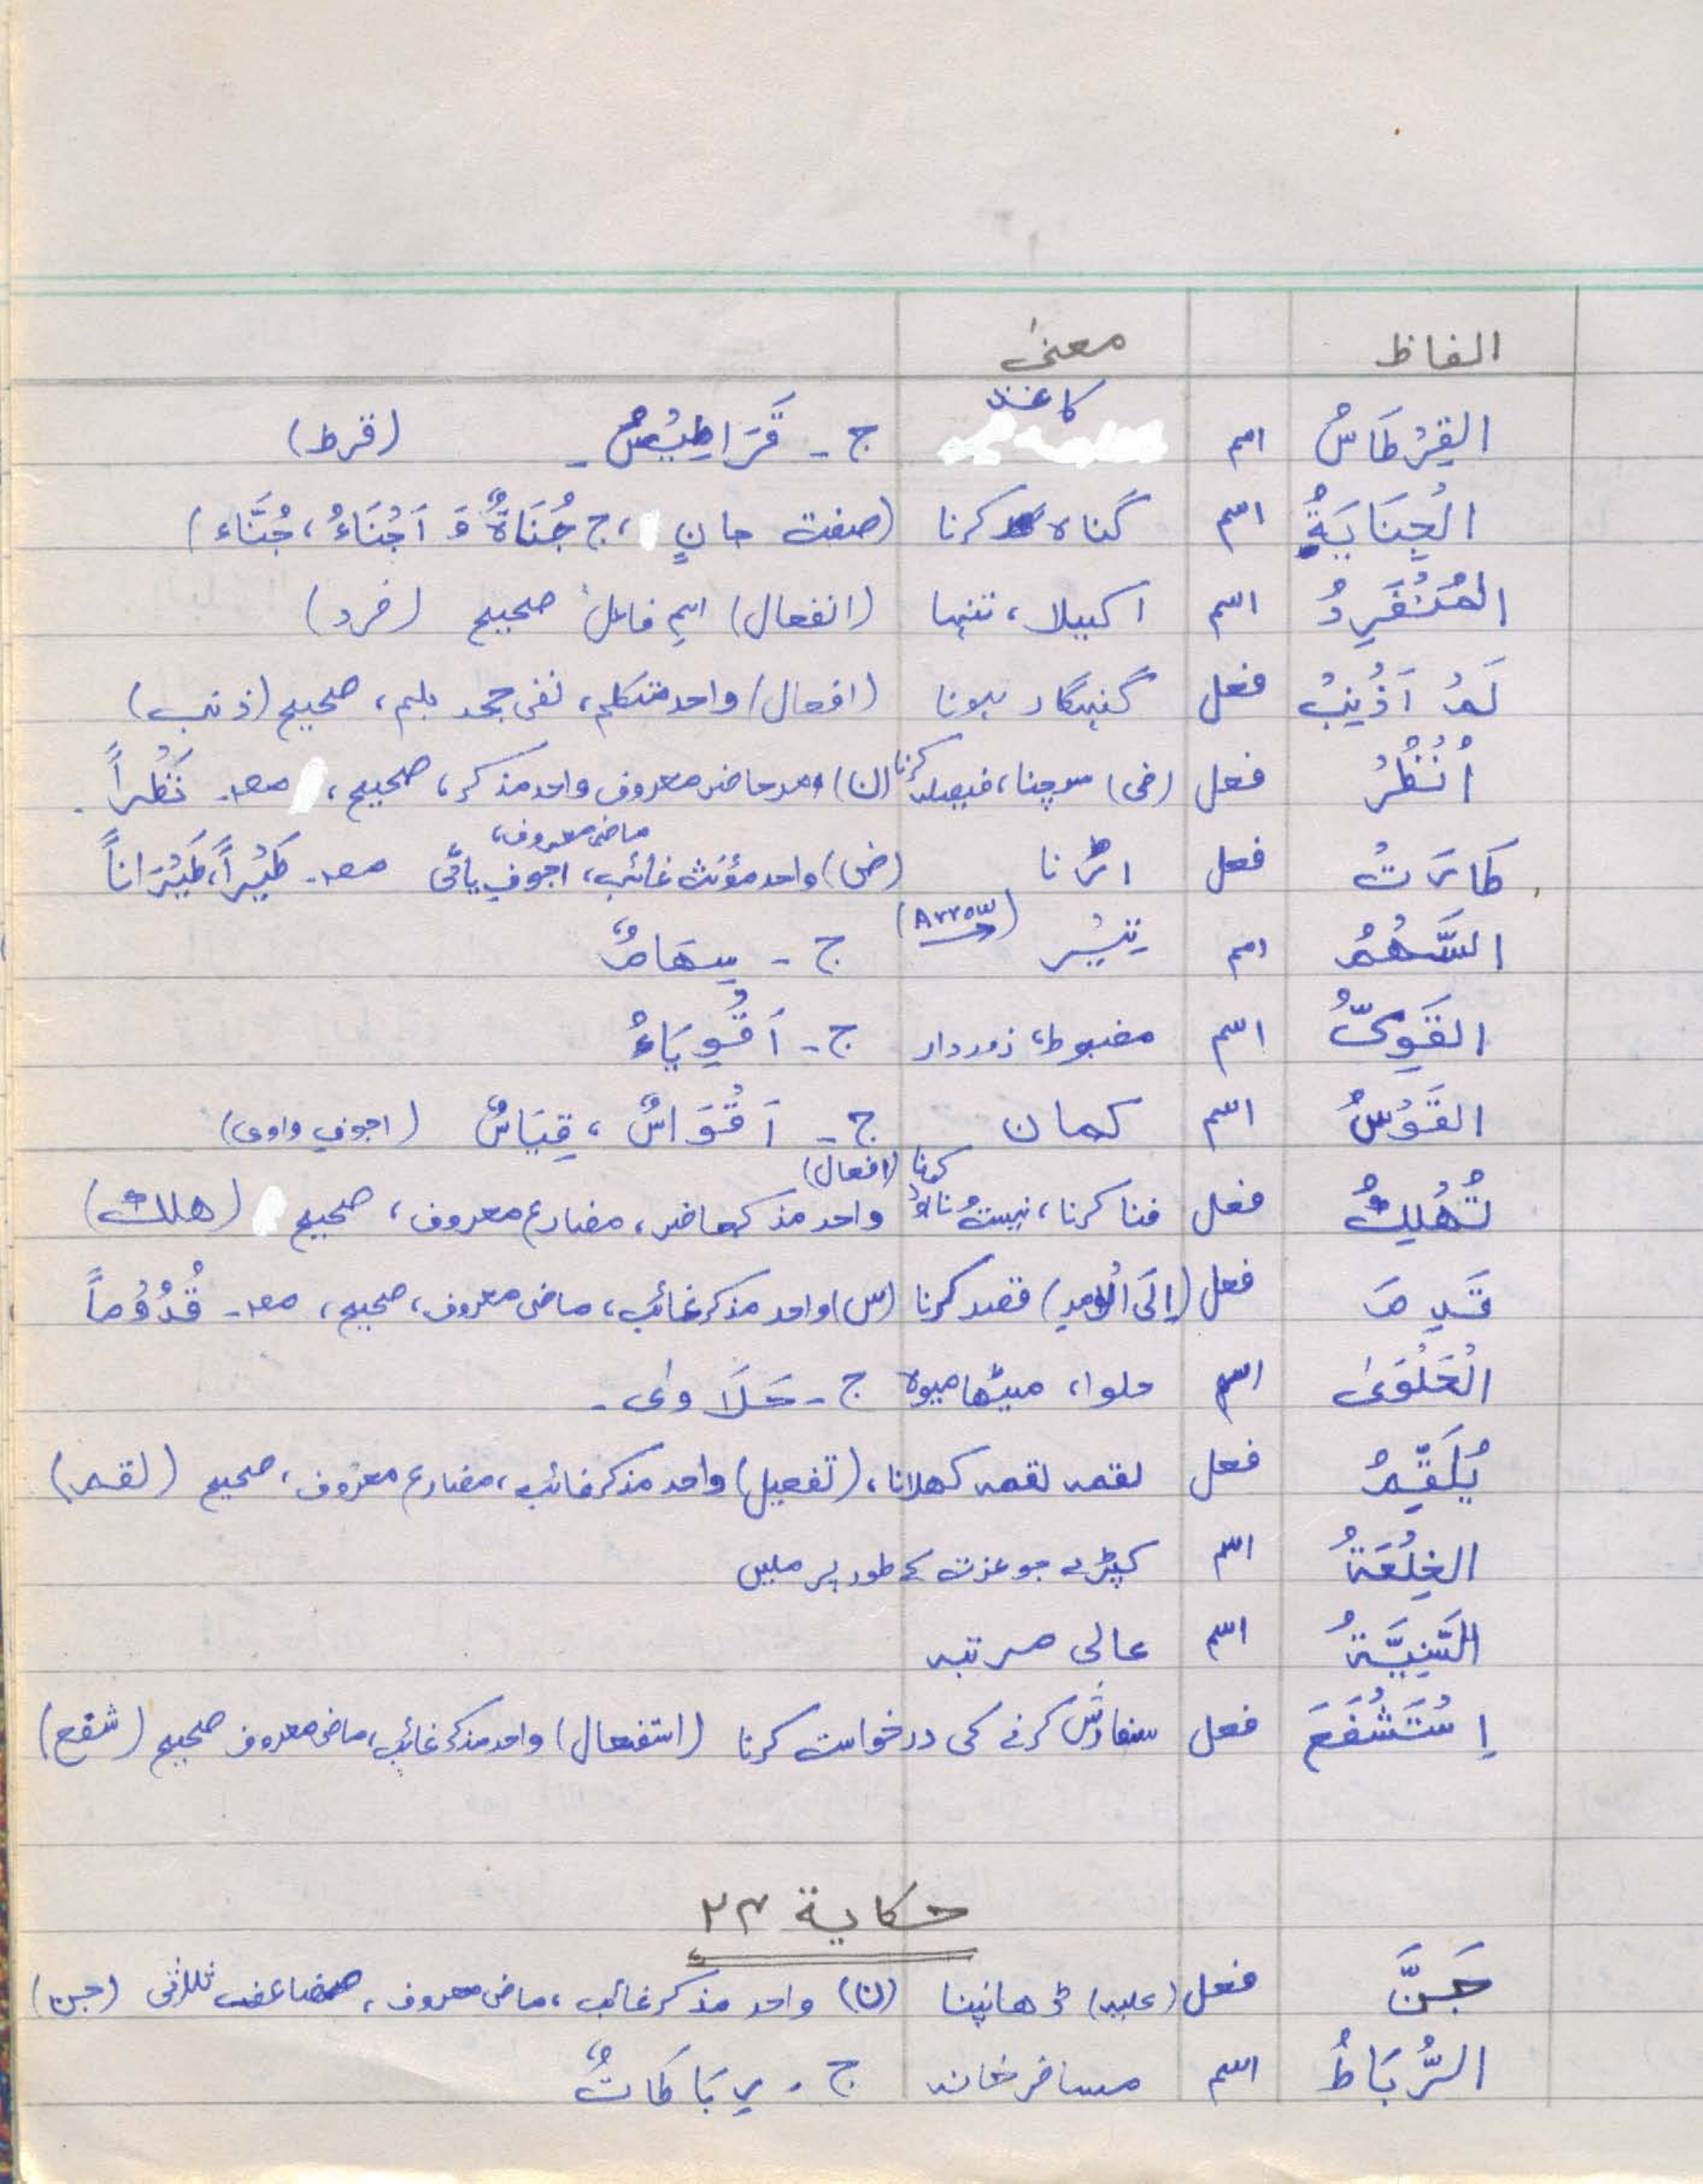 الفاظ معنیٰ
القِرْطَاسُ اسم کاغذ ج۔ قَرَاطِيْسُ۔ (قرط)
الْجِنَايَةُ اسم گناہ کرنا (صفت جانٍ، ج جُنَاةٌ وَ اَجْنَاءُ، جُنَّاء)
المُنْفَرِدُ اسم اکیلا، تنہا (انفعال) اسمِ فاعل صحیح (فرد)
لَمْ اَذْنِبْ فعل گنہگار ہونا (افعال) واحد متکلم، نفی جحد بلم، صحیح (ذنب)
اُنْظُرْ فعل (فی) سوچنا، فیصلہ کرنا (ن) امر حاضر معروف واحد مذکر، صحیح، مص۔ نَظْراً۔
طَارَتْ فعل اڑنا (ض) واحد مؤنث غائب، ماضی معروف، اجوف یائی مص۔ طَيْراً، طَيْرَاناً
السَّهْمُ اسم تیْر (Arrow) ج۔ سِهَامٌ
القَوِىُّ اسم مضبوط، زوردار ج۔ اَقْوِيَاءُ
القَوْسُ اسم کمان ج۔ اَقْوَاسٌ، قِيَاسٌ (اجوف واوی)
تُهْلِكُ فعل فنا کرنا، نیست ونابود کرنا (افعال) واحد مذکر حاضر، مضارع معروف، صحیح (هلك)
قَدِمَ فعل (اِلَى الْاَمرِ) قصد کرنا (س) واحد مذکر غائب، ماضی معروف، صحیح، مص۔ قُدُوْماً
الْحَلْوَىٰ اسم حلوا، میٹھا میوہ ج۔ حَلَاوىٰ۔
يُلَقِّمُ فعل لقمہ لقمہ کھلانا، (تفعیل) واحد مذکر غائب، مضارع معروف، صحیح (لقم)
الخِلْعَةُ اسم کپڑے جو عزت کے طور پر ملیں
السَّنِيَّةُ اسم عالی مرتبہ
اِسْتَشْفَعَ فعل سفارش کرنے کی درخواست کرنا (استفعال) واحد مذکر غائب، ماضی معروف صحیح (شفع)
حکایة ٢٣
جَنَّ فعل (علیہ) ڈھانپنا (ن) واحد مذکر غائب، ماضی معروف، مضاعف ثلاثی (جن)
الرُّبَاطُ اسم مسافر خانہ ج۔ رِبَاطَاتٌ